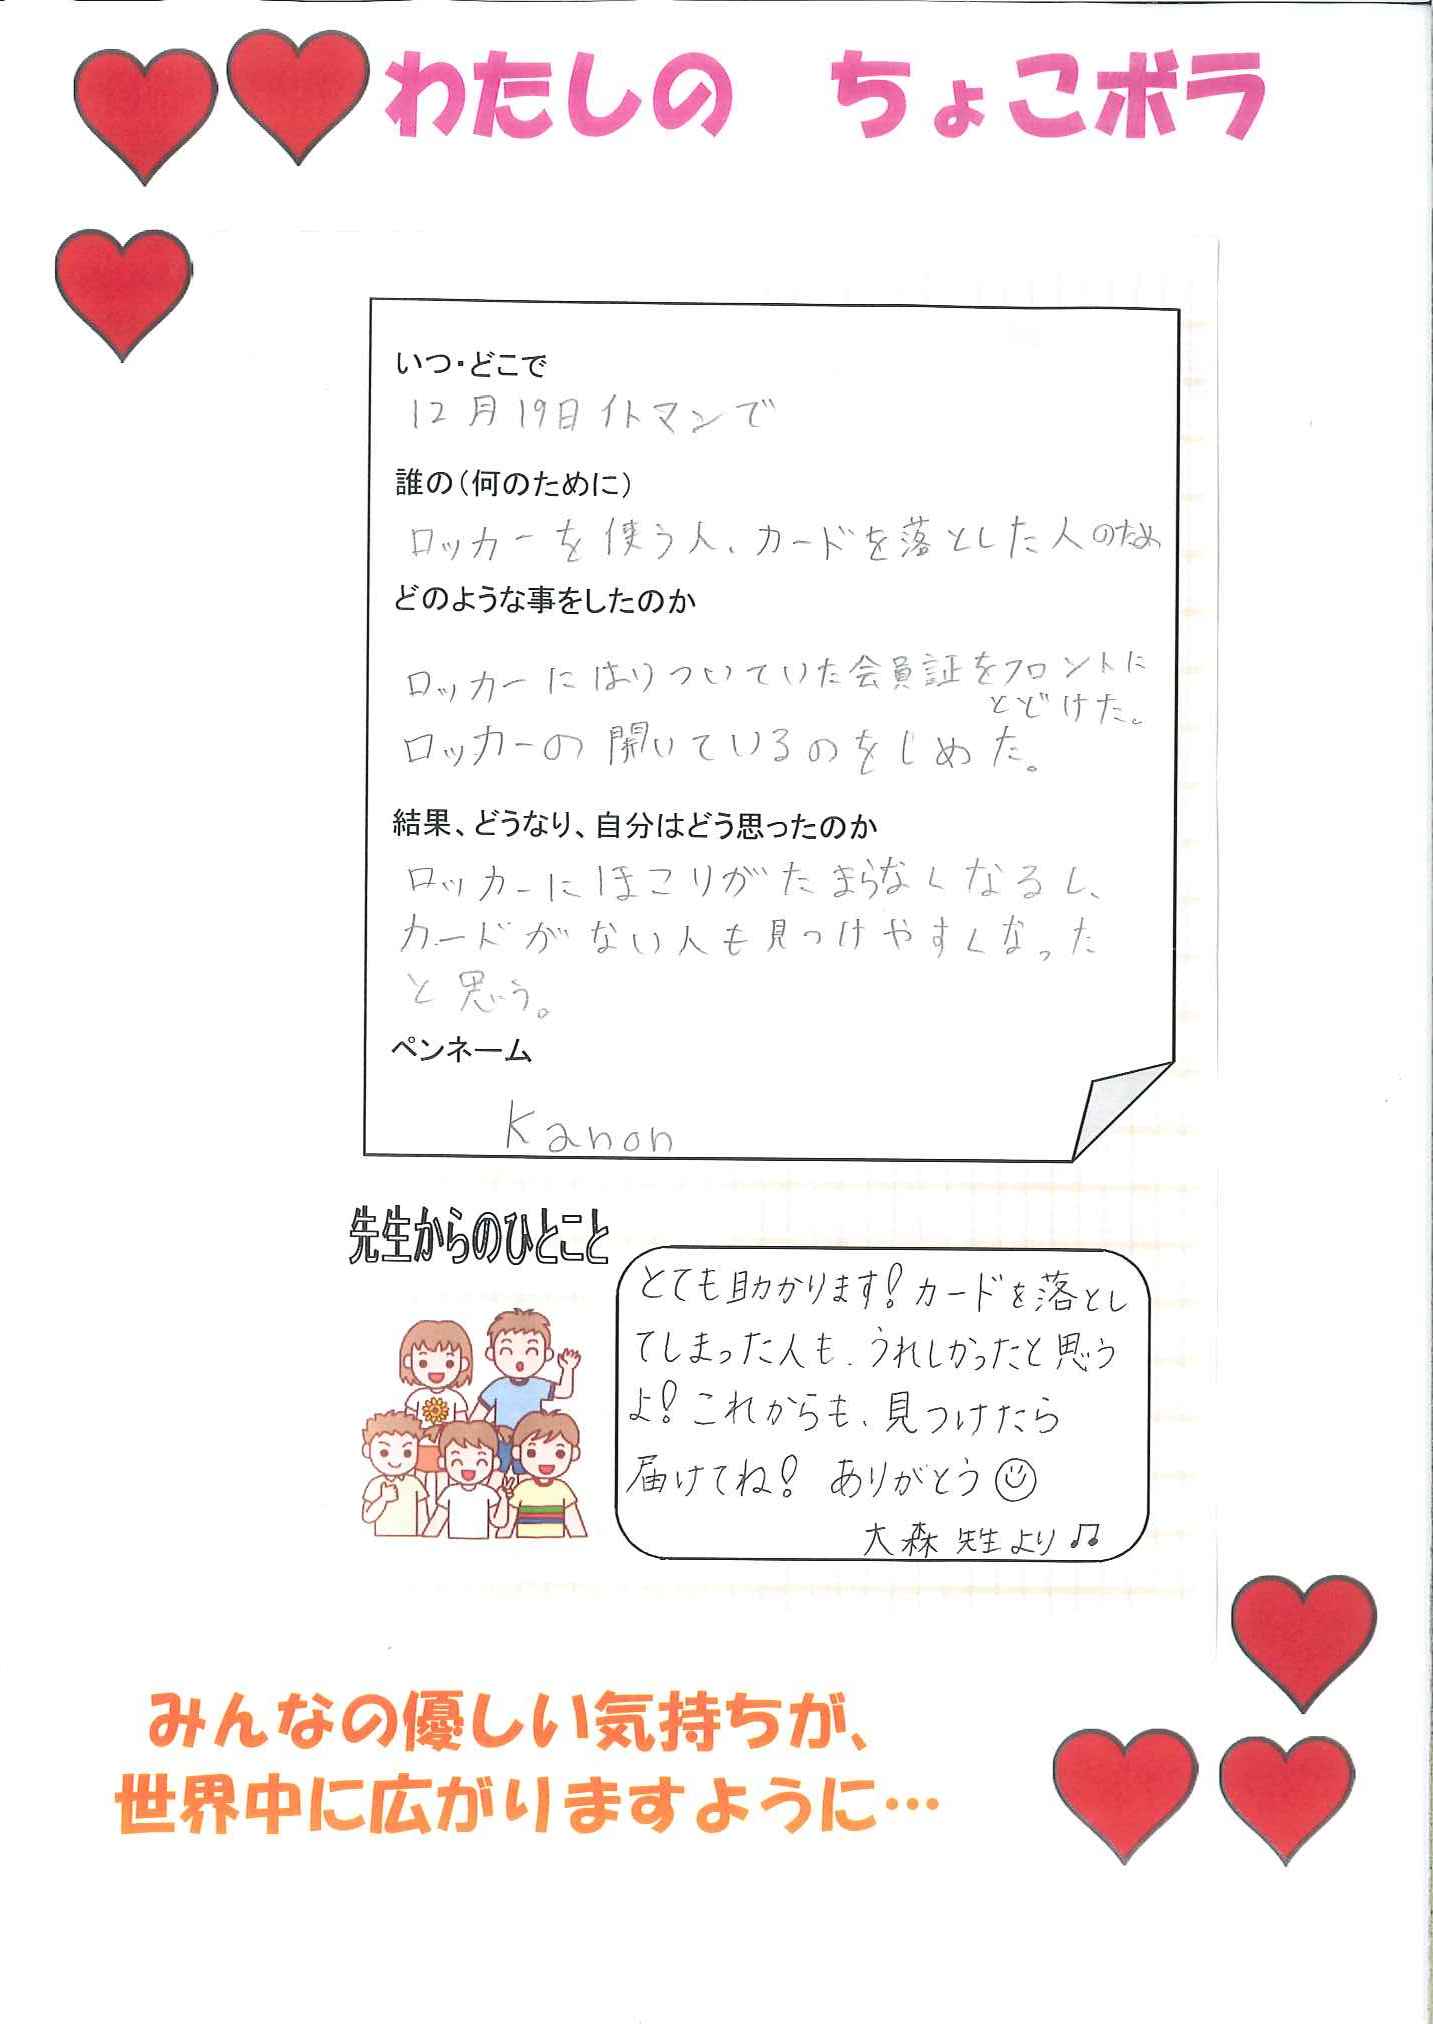 わたしの　ちょこボラ
いつ・どこで
12月19日イトマンで
誰の（何のために）
ロッカーを使う人、カードを落とした人のため
どのような事をしたのか
ロッカーにはりついていた会員証をフロントに
とどけた。
ロッカーの開いているのをしめた。
結果、どうなり、自分はどう思ったのか
ロッカーにほこりがたまらなくなるし、
カードがない人も見つけやすくなった
と思う。
ペンネーム
Kanon
先生からのひとこと
とても助かります！カードを落とし
てしまった人も、うれしかったと思う
よ！これからも、見つけたら
届けてね！ ありがとう☺
大森先生より♫
みんなの優しい気持ちが、
世界中に広がりますように…